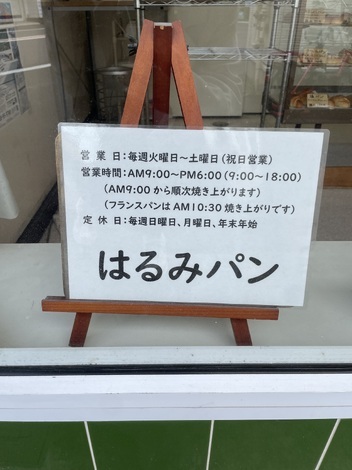 営 業 日：毎週火曜日～土曜日（祝日営業）
営業時間：AM9:00～PM6:00（9:00～18:00）
（AM9:00から順次焼き上がります）
（フランスパンはAM10:30焼き上がりです）
定 休 日：毎週日曜日、月曜日、年末年始
はるみパン